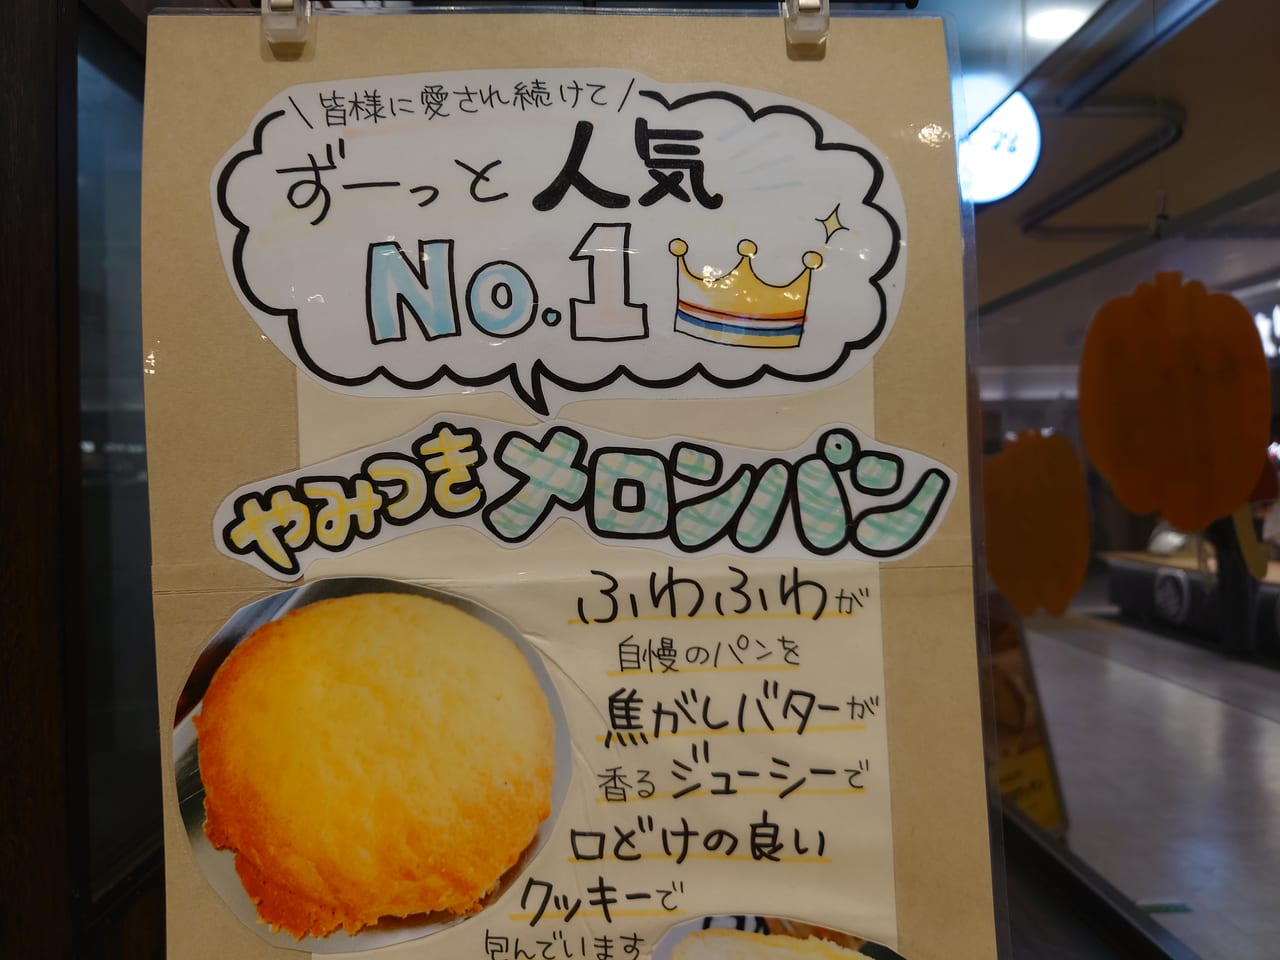 \皆様に愛され続けて/
ずーっと人気
No.1
やみつきメロンパン
ふわふわが
自慢のパンを
焦がしバターが
香るジューシーで
口どけの良い
クッキーで
包んでいます